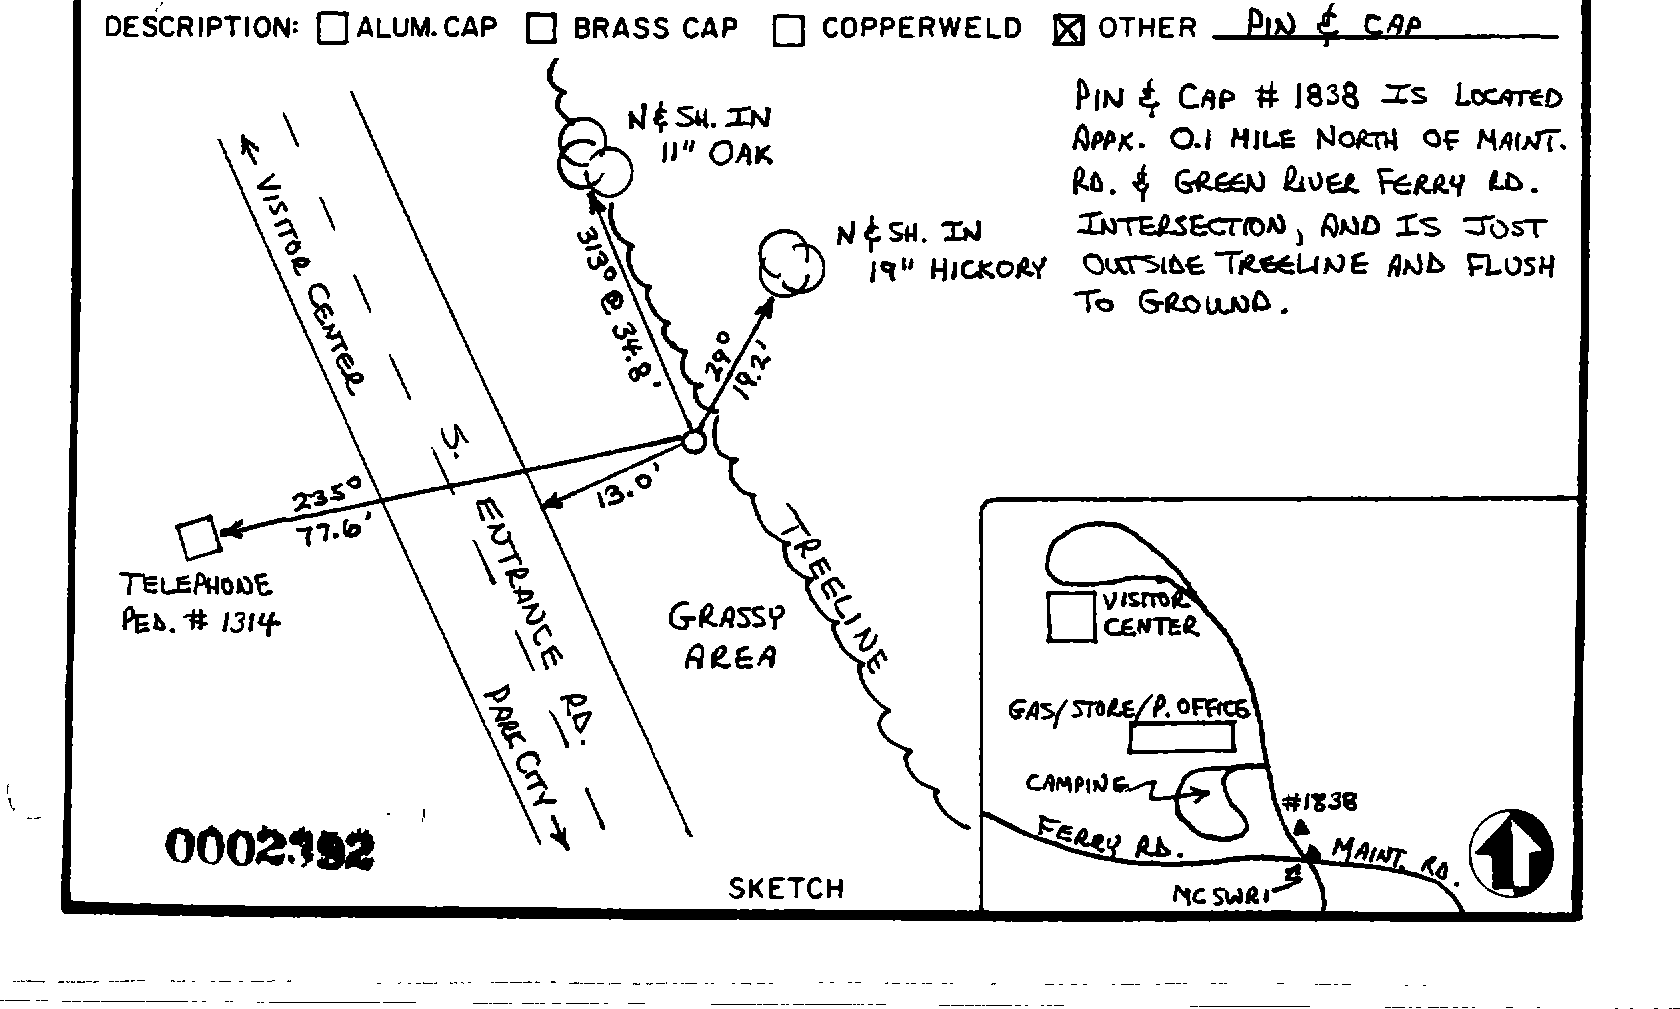 DESCRIPTION: ALUM. CAP BRASS CAP COPPERWELD OTHER PIN & CAP
PIN & CAP # 1838 IS LOCATED
APPX. 0.1 MILE NORTH OF MAINT.
RD. & GREEN RIVER FERRY RD.
INTERSECTION, AND IS JUST
OUTSIDE TREELINE AND FLUSH
TO GROUND.
N & SH. IN
11" OAK
N & SH. IN
19" HICKORY
313° @ 34.8'
29°
19.2'
VISITOR CENTER
S. ENTRANCE RD.
PARK CITY
13.0'
235°
77.6'
TELEPHONE
PED. # 1314
GRASSY
AREA
TREELINE
VISITOR
CENTER
GAS/STORE/P. OFFICE
CAMPING
#1838
FERRY RD.
MAINT. RD.
MCSWRI
SKETCH